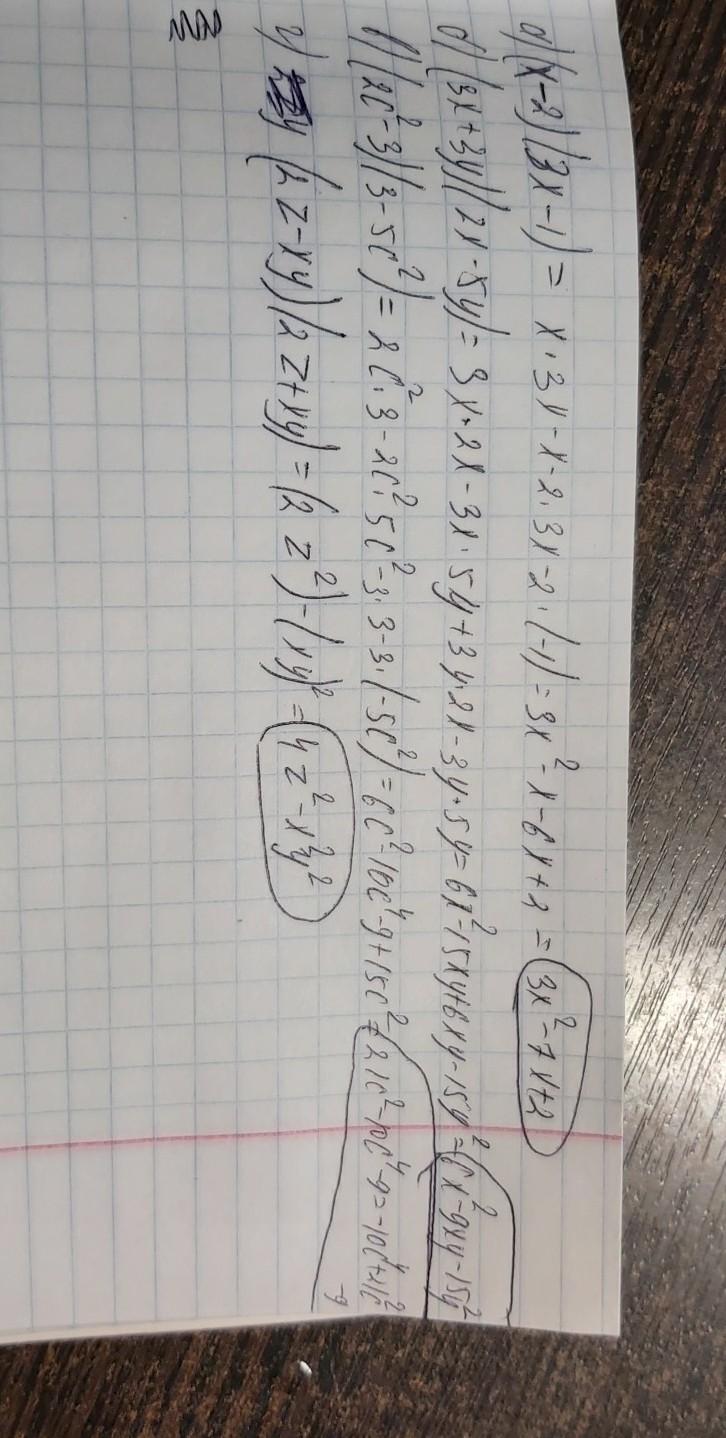 а) (x-2)(3x-1) = x·3x-x-2·3x-2·(-1)=3x²-x-6x+2 = 3x²-7x+2
б) (3x+3y)(2x-5y)= 3x·2x-3x·5y+3y·2x-3y·5y=6x²-15xy+6xy-15y²=6x²-9xy-15y²
в) (2c²-3)(3-5c²)= 2c²·3-2c²·5c²-3·3-3·(-5c²)=6c²-10c⁴-9+15c²=21c²-10c⁴-9=-10c⁴+21c²
-9
г) (2z-xy)(2z+xy)=(2z²)-(xy)²=4z²-x²y²